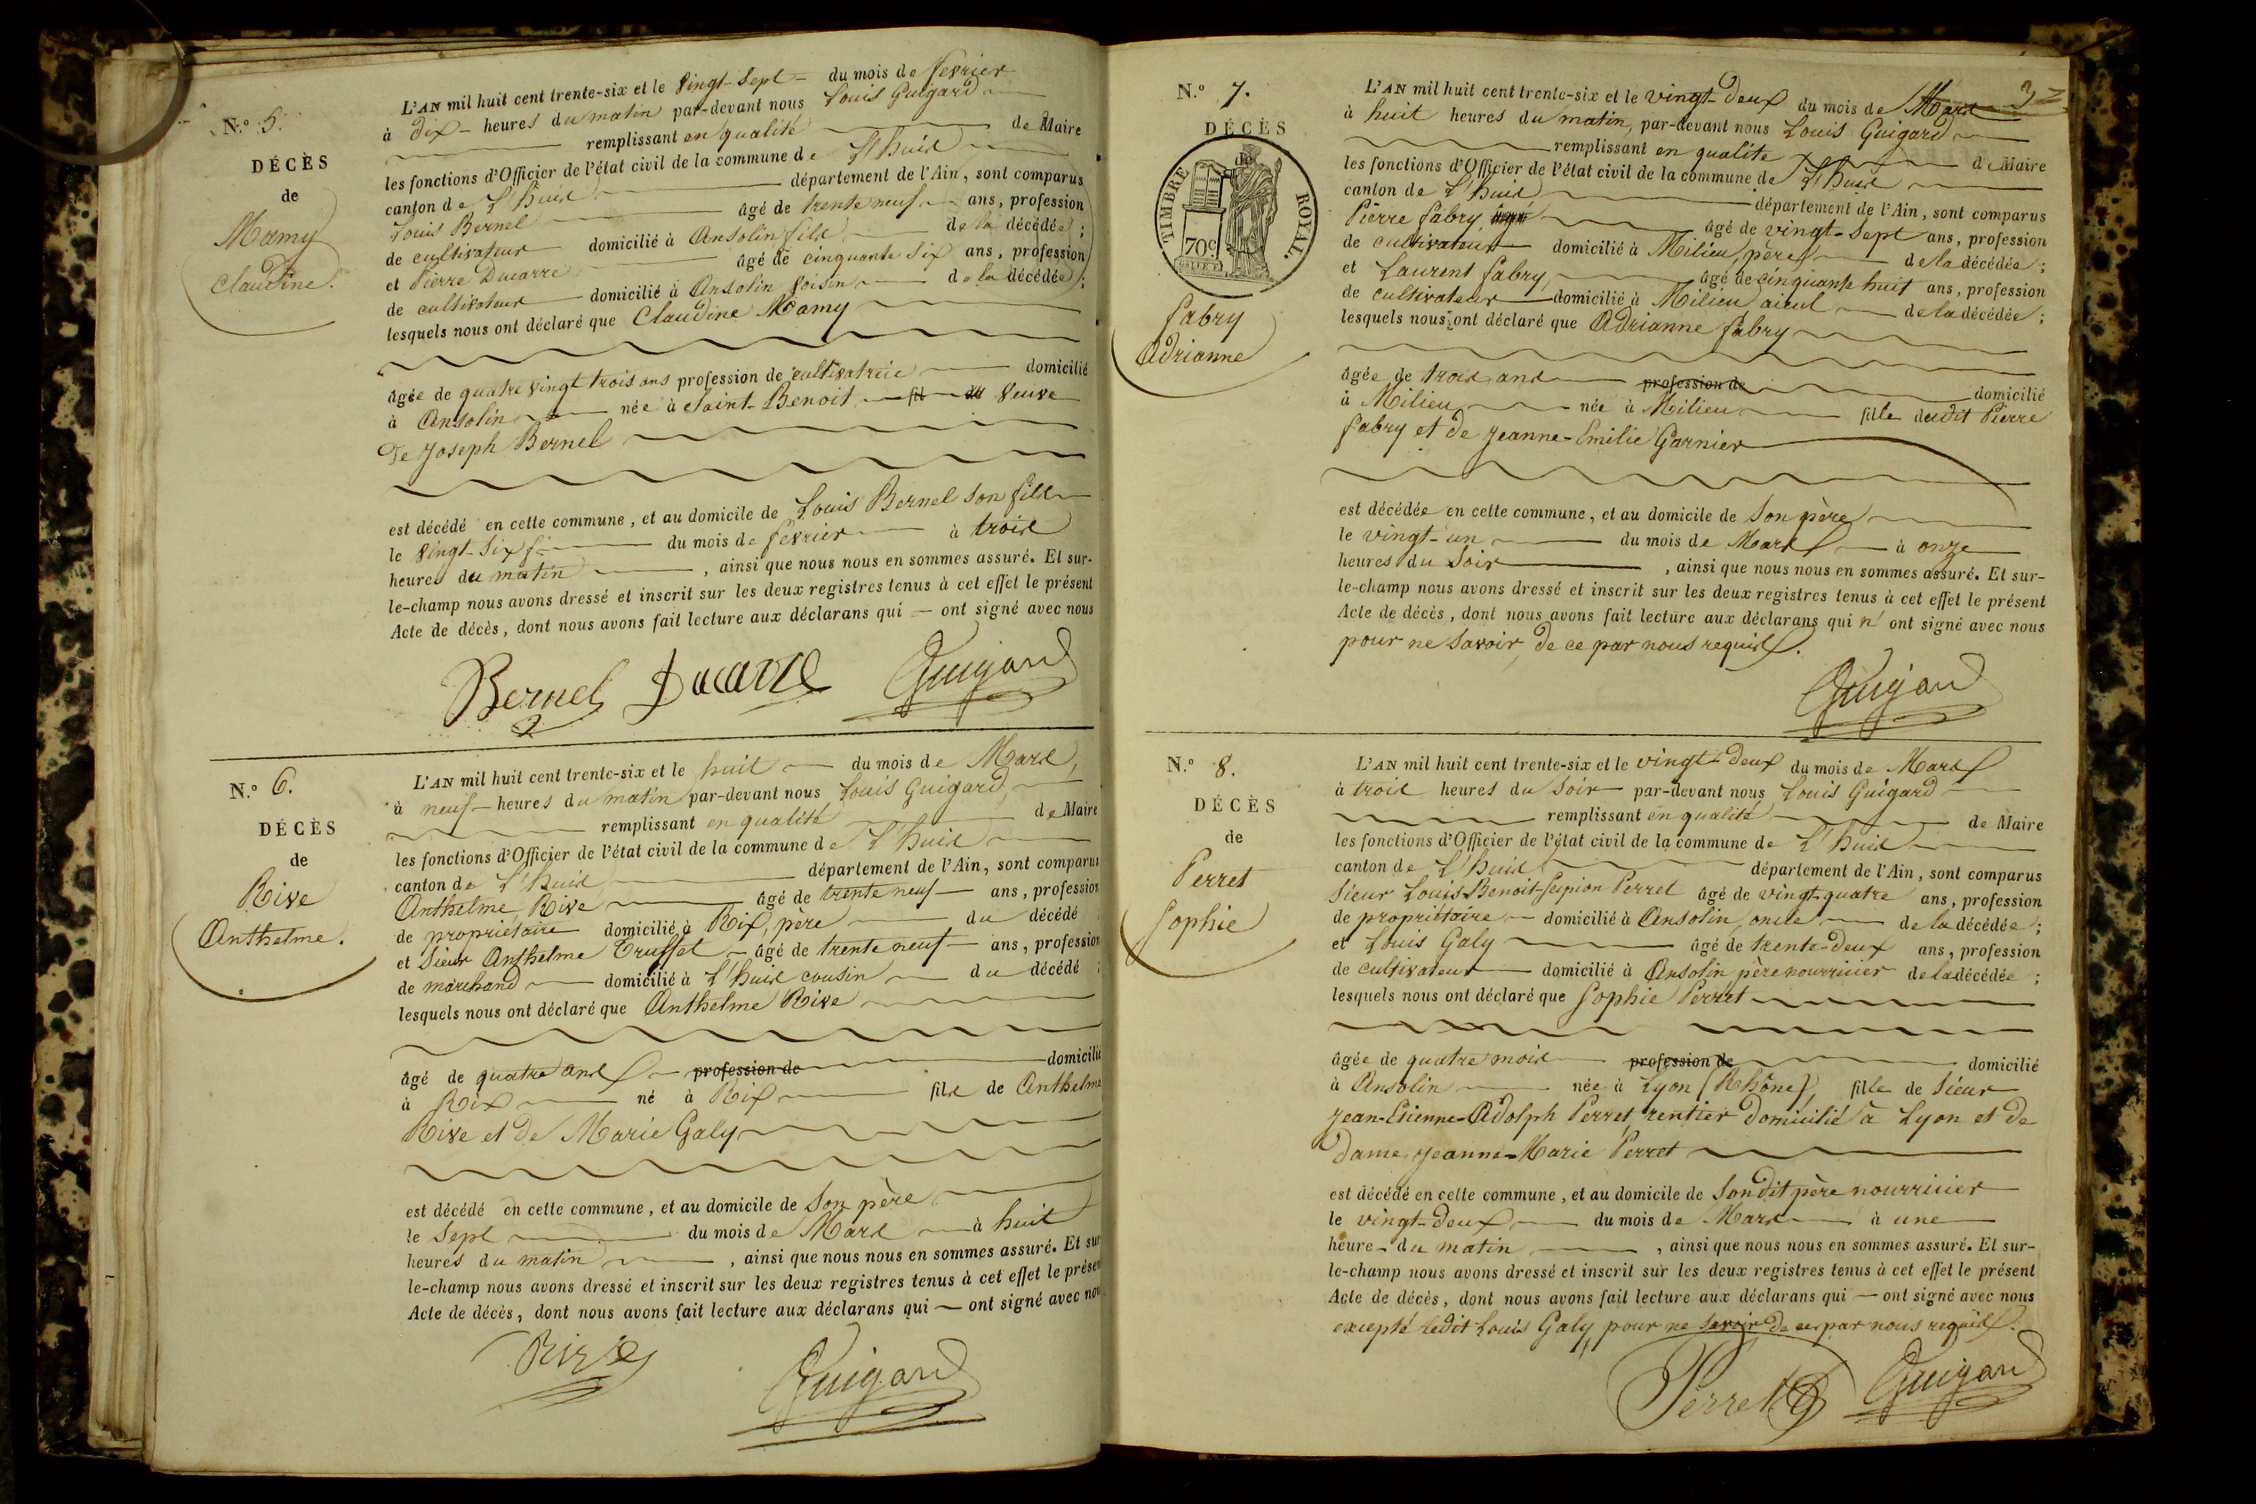 N.º 5.
DÉCÈS
de
Mamy
Claudine.
L'AN mil huit cent trente-six et le vingt-sept du mois de février
à dix heures du matin par-devant nous Louis Guigard
remplissant en qualité de Maire
les fonctions d'Officier de l'état civil de la commune de L'huis
canton de L'huis département de l'Ain, sont comparus
Louis Bernel âgé de trente neuf ans, profession
de cultivateur domicilié à Ansolin fils de la décédée ;
et Pierre Ducarre âgé de cinquante six ans, profession
de cultivateur domicilié à Ansolin voisin de la décédée ;
lesquels nous ont déclaré que Claudine Mamy
âgée de quatre vingt trois ans profession de cultivatrice domicilié
à Ansolin née à Saint-Benoit fil de veuve
De Joseph Bernel
est décédé en cette commune, et au domicile de Louis Bernel son fils
le vingt-six du mois de février à trois
heures du matin , ainsi que nous nous en sommes assuré. Et sur-
le-champ nous avons dressé et inscrit sur les deux registres tenus à cet effet le présent
Acte de décès, dont nous avons fait lecture aux déclarans qui ont signé avec nous
Bernel Ducarre Guigard
N.º 6.
DÉCÈS
de
Rive
Anthelme.
L'AN mil huit cent trente-six et le huit du mois de Mars,
à neuf heures du matin par-devant nous Louis Guigard,
remplissant en qualité de Maire
les fonctions d'Officier de l'état civil de la commune de L'huis
canton de L'huis département de l'Ain, sont comparus
Anthelme Rive âgé de trente neuf ans, profession
de propriétaire domicilié à Rix, père du décédé
et Sieur Anthelme Truffet âgé de trente neuf ans, profession
de marchand domicilié à L'huis cousin du décédé ;
lesquels nous ont déclaré que Anthelme Rive
âgé de quatre ans profession de domicilié
à Rix né à Rix fils de Anthelme
Rive et de Marie Galy
est décédé en cette commune, et au domicile de Son père
le Sept du mois de Mars à huit
heures du matin , ainsi que nous nous en sommes assuré. Et sur
le-champ nous avons dressé et inscrit sur les deux registres tenus à cet effet le présen
Acte de décès, dont nous avons fait lecture aux déclarans qui ont signé avec nou
Rive Guigard
N.º 7.
DÉCÈS
de
TIMBRE ROYAL.
70c.
Fabry
Adrianne
L'AN mil huit cent trente-six et le vingt-deux du mois de Mars
à huit heures du matin, par-devant nous Louis Guigard
remplissant en qualité de Maire
les fonctions d'Officier de l'état civil de la commune de L'huis
canton de L'huis département de l'Ain, sont comparus
Pierre Fabry âgé de vingt-sept ans, profession
de cultivateur domicilié à Milieu, père de la décédée ;
et Laurent Fabry, âgé de cinquante huit ans, profession
de cultivateur domicilié à Milieu aieul de la décédée ;
lesquels nous ont déclaré que Adrianne Fabry
âgée de trois ans profession de domicilié
à Milieu née à Milieu fille dudit Pierre
Fabry et de Jeanne-Emilie Garnier
est décédée en cette commune, et au domicile de Son père
le vingt-un du mois de Mars à onze
heures du Soir , ainsi que nous nous en sommes assuré. Et sur-
le-champ nous avons dressé et inscrit sur les deux registres tenus à cet effet le présent
Acte de décès, dont nous avons fait lecture aux déclarans qui n'ont signé avec nous
pour ne Savoir, de ce par nous requis.
Guigard
N.º 8.
DÉCÈS
de
Perret
Sophie
L'AN mil huit cent trente-six et le vingt-deux du mois de Mars
à trois heures du Soir par-devant nous Louis Guigard
remplissant en qualité de Maire
les fonctions d'Officier de l'état civil de la commune de L'huis
canton de L'huis département de l'Ain, sont comparus
Sieur Louis-Benoit-Scipion Perret âgé de vingt-quatre ans, profession
de propriétaire domicilié à Ansolin, oncle de la décédée ;
et Louis Galy âgé de trente-deux ans, profession
de cultivateur domicilié à Ansolin, père nourricier de la décédée ;
lesquels nous ont déclaré que Sophie Perret
âgée de quatre mois profession de domicilié
à Ansolin née à Lyon (Rhône), fille de Sieur
Jean-Etienne-Adolph Perret, rentier domicilié à Lyon et de
Dame Jeanne-Marie Perret
est décédé en cette commune, et au domicile de Sondit père nourricier
le vingt-deux du mois de Mars à une
heure du matin , ainsi que nous nous en sommes assuré. Et sur-
le-champ nous avons dressé et inscrit sur les deux registres tenus à cet effet le présent
Acte de décès, dont nous avons fait lecture aux déclarans qui ont signé avec nous
excepté ledit Louis Galy, pour ne Savoir de ce par nous requis.
Perret Guigard